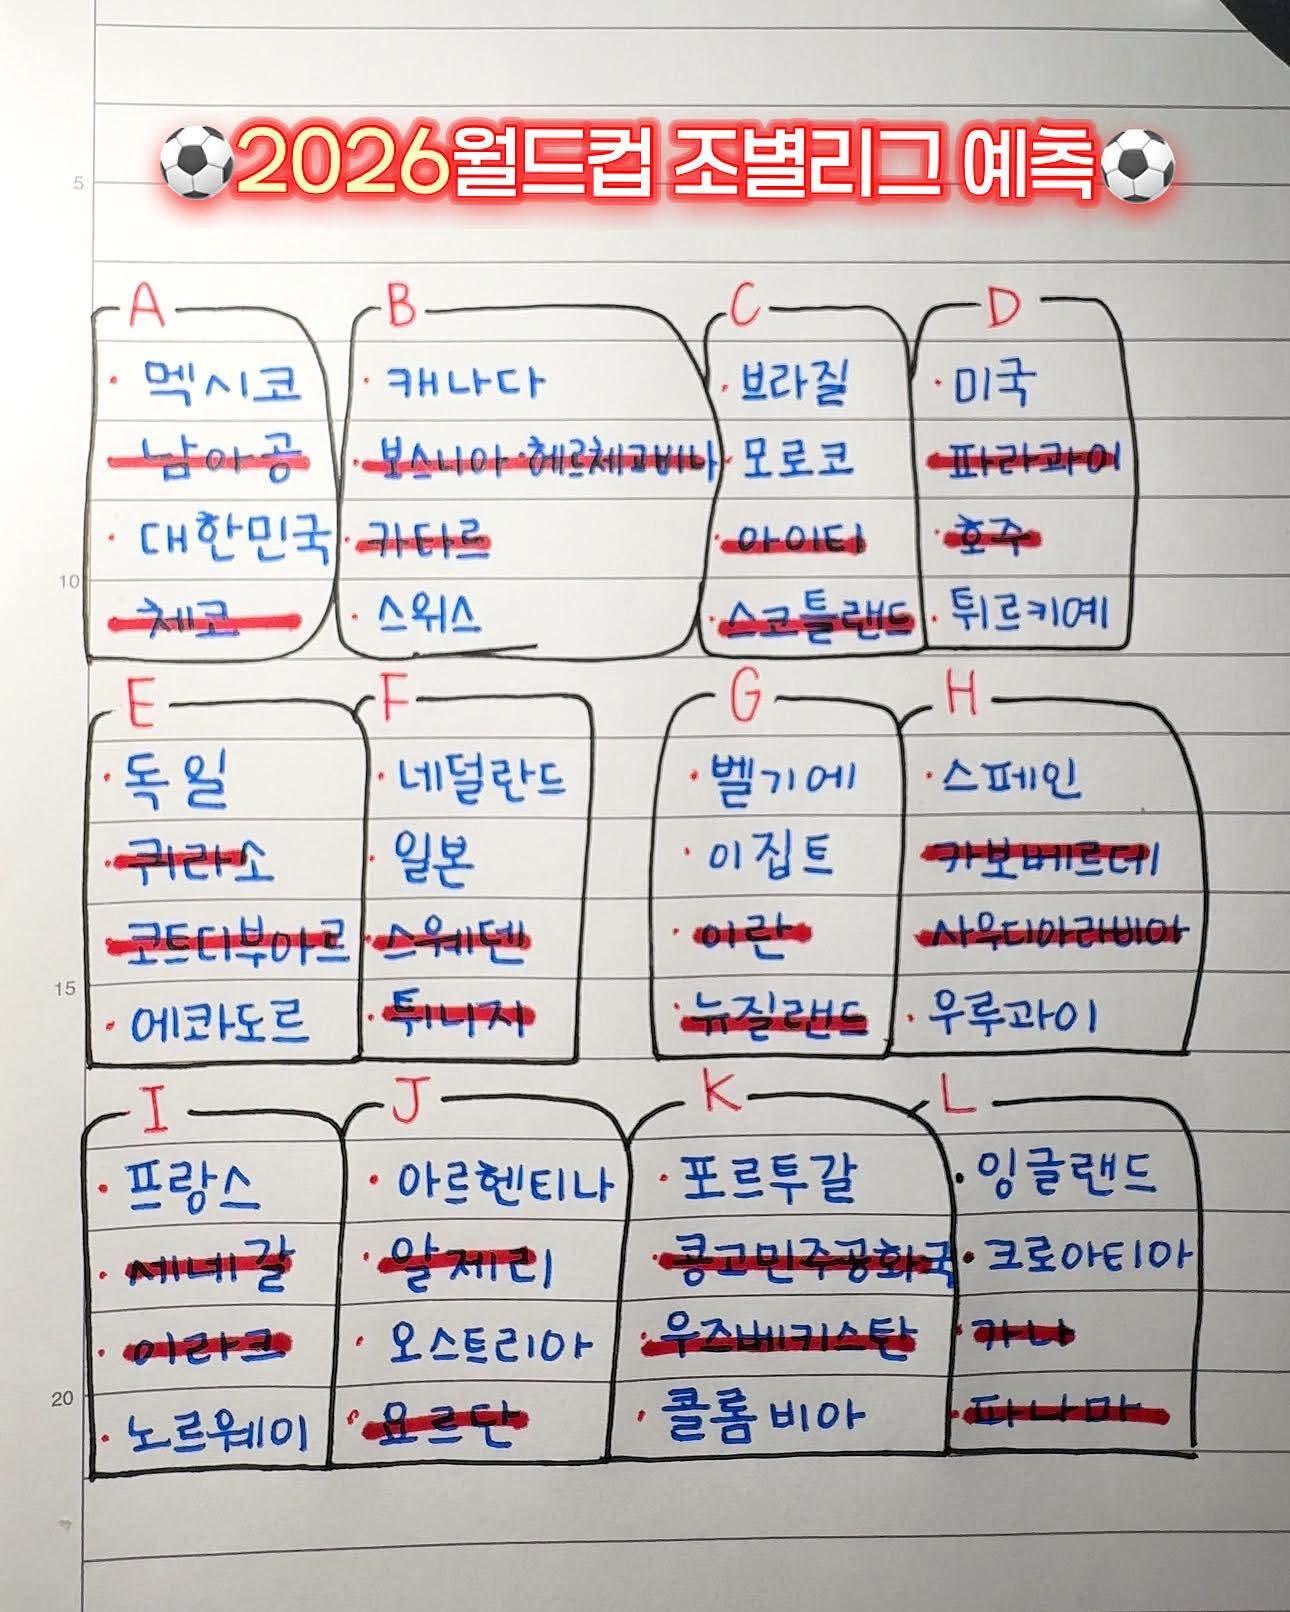 2026월드컵 조별리그 예측
5
A
·멕시코
·남아공
·대한민국
·체코
B
·캐나다
·보스니아·헤르체고비나
·카타르
·스위스
C
·브라질
·모로코
·아이티
·스코틀랜드
D
·미국
·파라과이
·호주
·튀르키예
10
E
·독일
·퀴라소
·코트디부아르
·에콰도르
F
·네덜란드
·일본
·스웨덴
·튀니지
G
·벨기에
·이집트
·이란
·뉴질랜드
H
·스페인
·카보베르데
·사우디아라비아
·우루과이
15
I
·프랑스
·세네갈
·이라크
·노르웨이
J
·아르헨티나
·알제리
·오스트리아
·요르단
K
·포르투갈
·콩고민주공화국
·우즈베키스탄
·콜롬비아
L
·잉글랜드
·크로아티아
·가나
·파나마
20